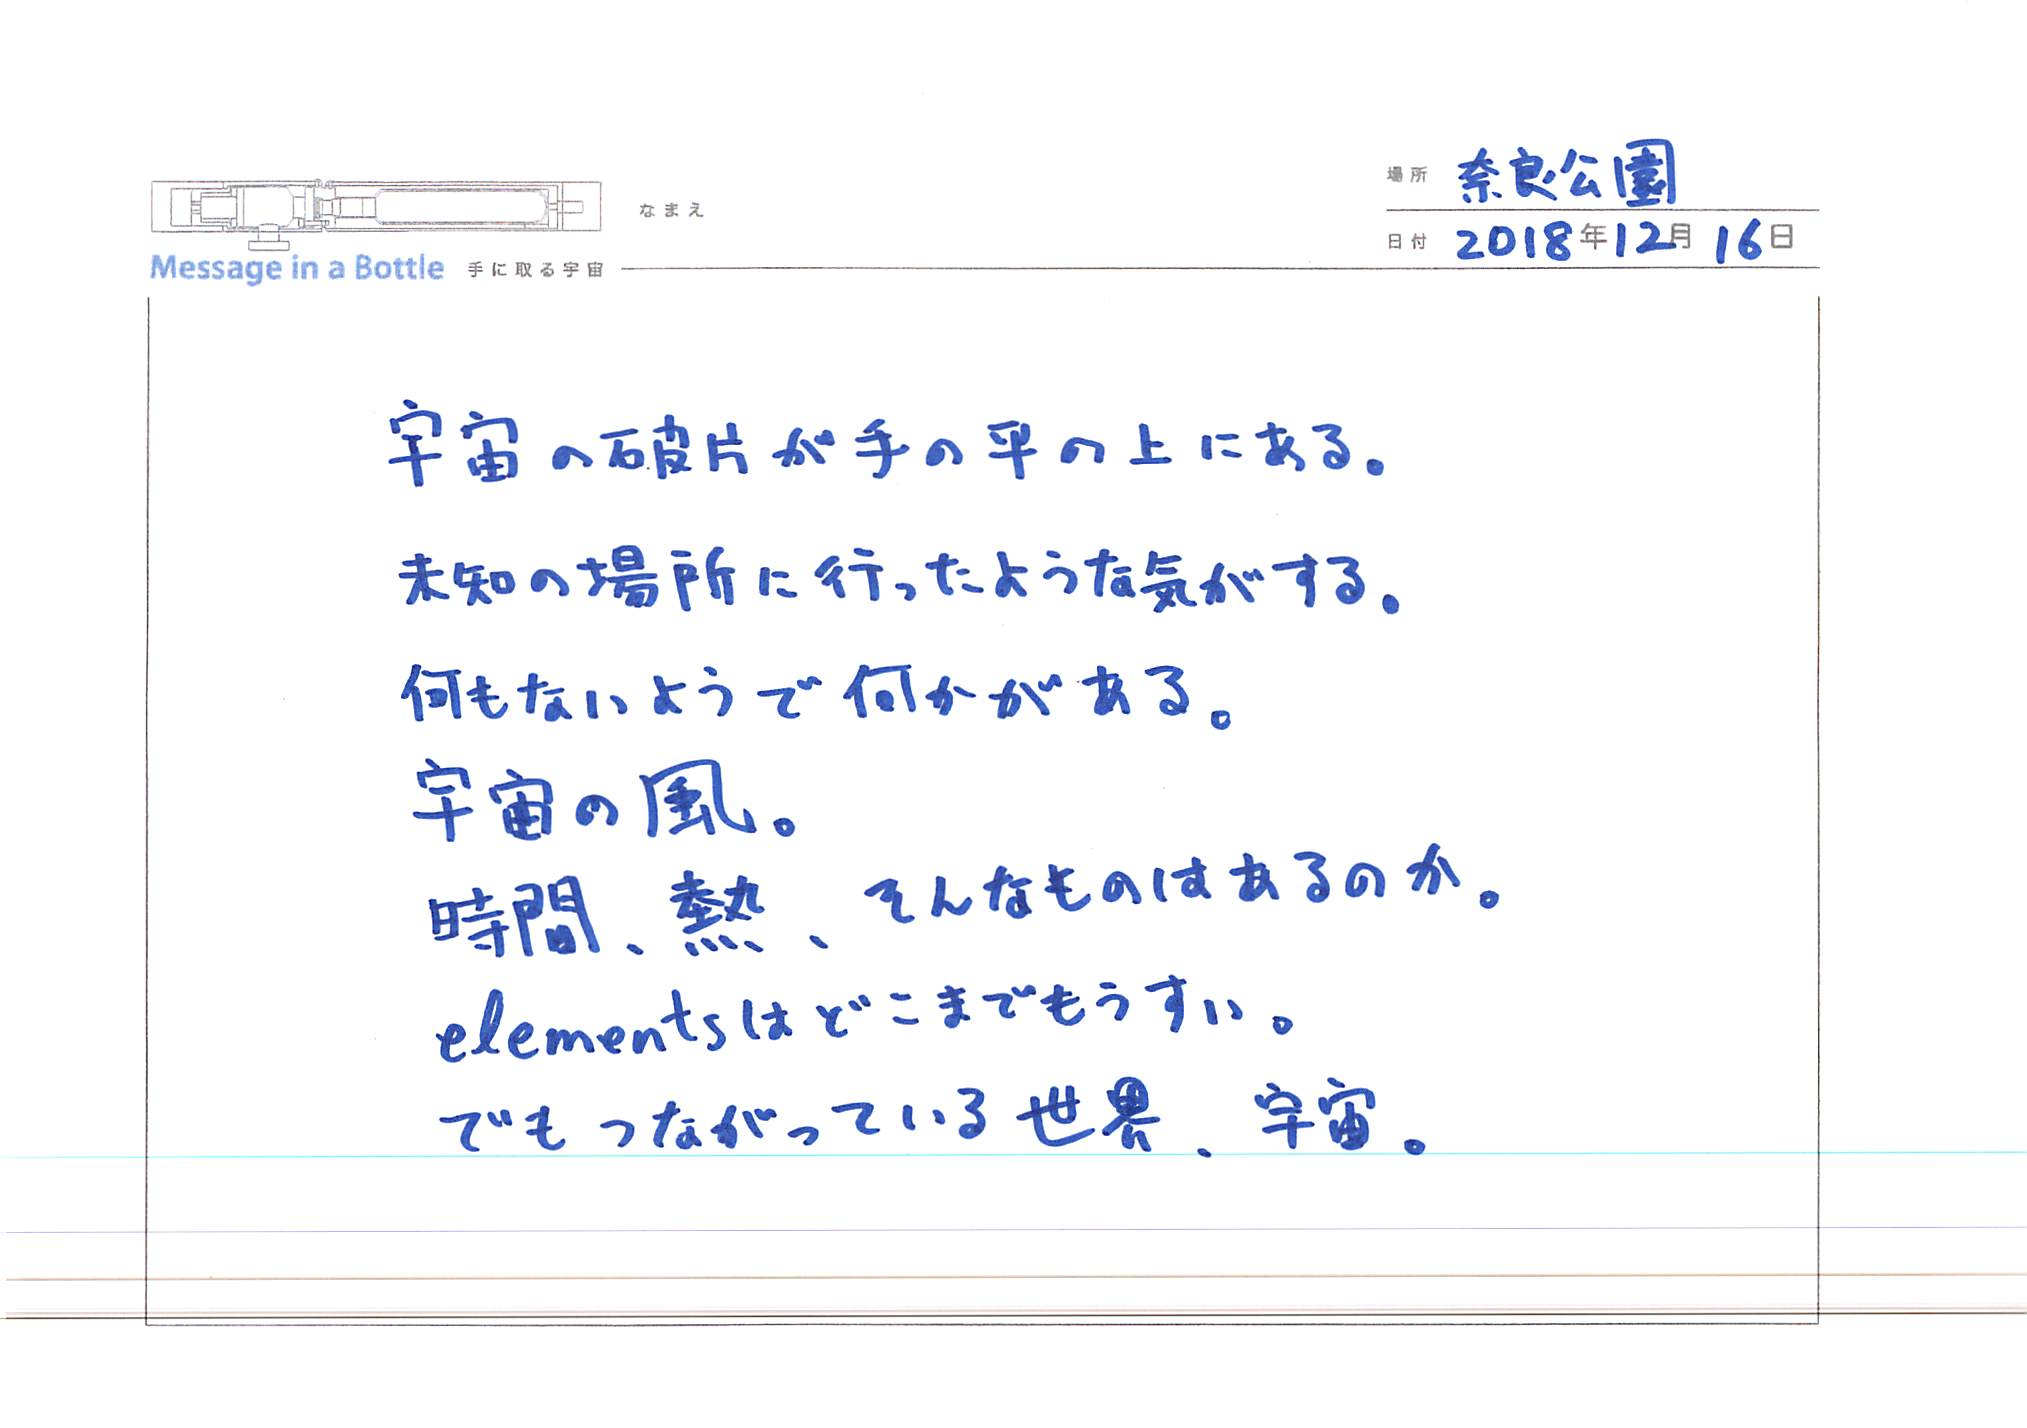 場所 奈良公園
なまえ
日付 2018年12月16日
Message in a Bottle 手に取る宇宙
宇宙の破片が手の平の上にある。
未知の場所に行ったような気がする。
何もないようで何かがある。
宇宙の風。
時間、熱、そんなものはあるのか。
elementsはどこまでもうすい。
でもつながっている世界、宇宙。